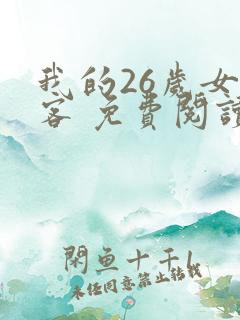 我的26歲女
客 免費閱讀
閑魚十千1
未经同意禁止转载